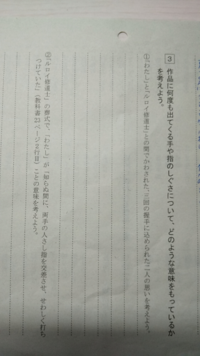 3 作品に何度も出てくる手や指のしぐさについて、どのような意味をもっているか
を考えよう。
①「わたし」と「ルロイ修道士」との間でかわされた、三回の握手に込められた二人の思いを考えよう。
②「ルロイ修道士」の葬式で、「わたし」が「知らぬ間に、両手の人さし指を交差させ、せわしく打ち
つけていた」(教科書23ページ2行目)ことの意味を考えよう。